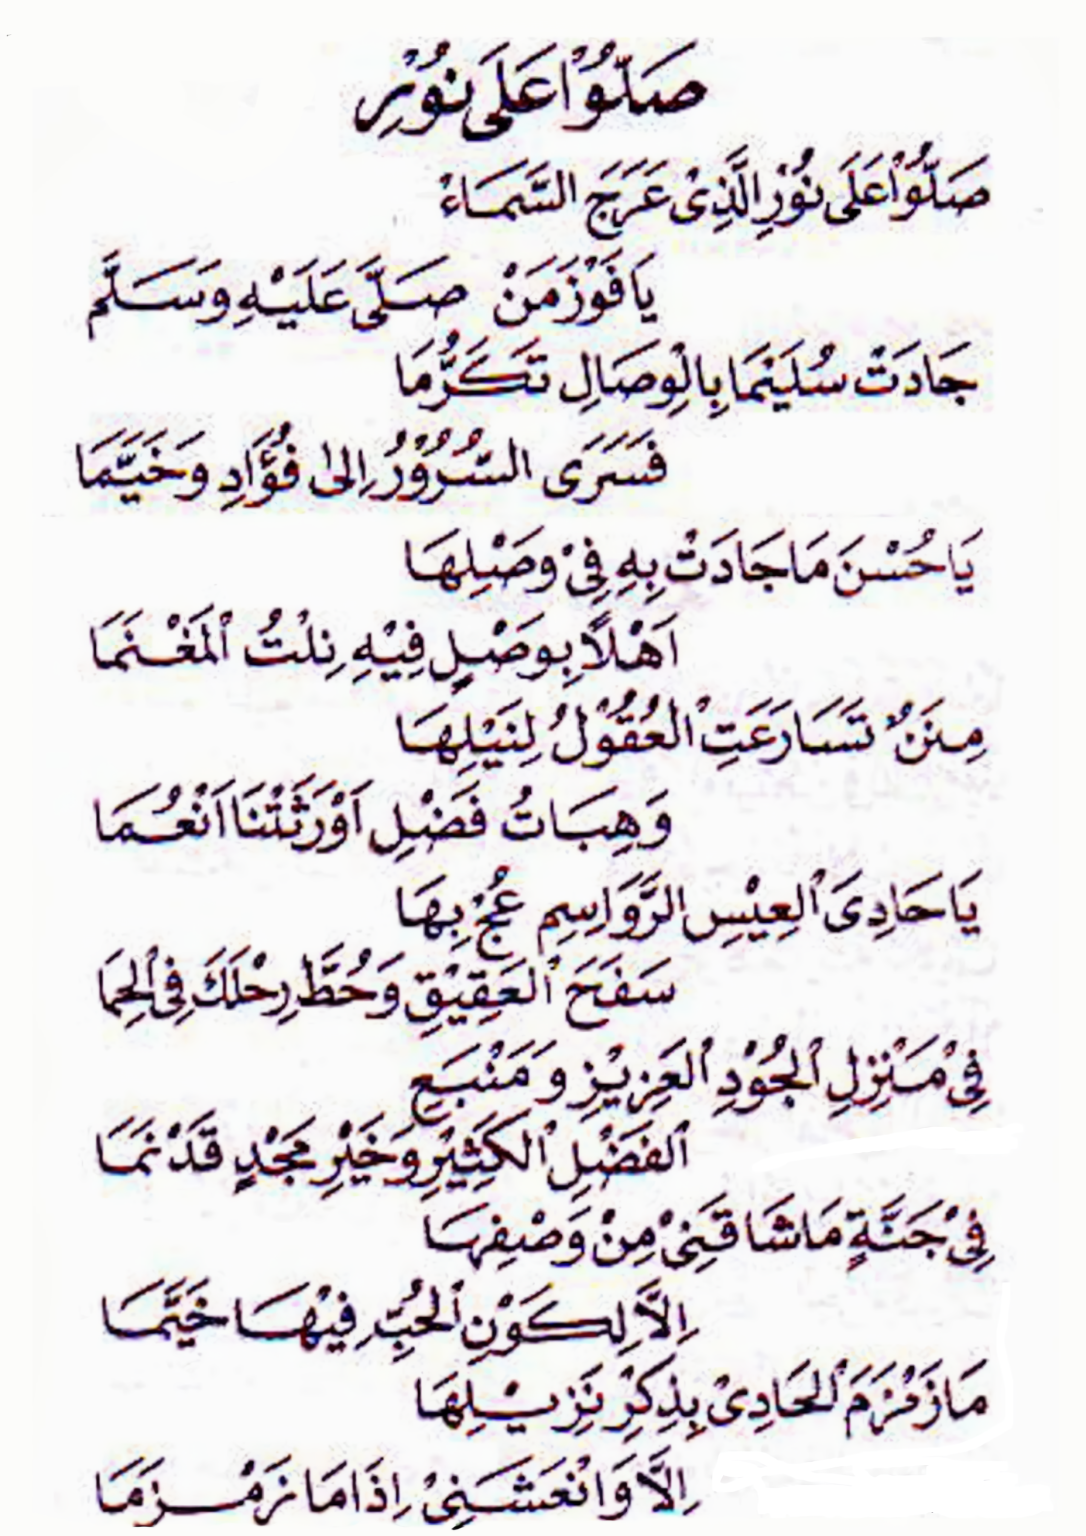 صَلُّوْا عَلَى نُوْرِ
صَلُّوْا عَلَى نُوْرِ الَّذِيْ عَرَجَ السَّمَاءْ
يَا فَوْزَ مَنْ صَلَّى عَلَيْهِ وَسَلَّمَ
جَادَتْ سُلَيْمَا بِالْوِصَالِ تَكَرُّمَا
فَسَرَى السُّرُوْرُ اِلَى فُؤَادِ وَخَيَّمَا
يَا حُسْنَ مَا جَادَتْ بِهِ فِيْ وَصْلِهَا
اَهْلًا بِوَصْلٍ فِيْهِ نِلْتُ الْمَغْنَمَا
مِنَنٌ تَسَارَعَتِ الْعُقُوْلُ لِنَيْلِهَا
وَهِبَاتُ فَضْلِ اَوْرَثَتْنَا اَنْعُمَا
يَا حَادِىَ الْعِيْسِ الرَّوَاسِمِ عُجْ بِهَا
سَفَحَ الْعَقِيْقِ وَحُطَّ رِحْلَكَ فِى الْحِمَا
فِيْ مَنْزِلِ الْجُوْدِ الْعَزِيْزِ وَمَنْبَعِ
الْفَضْلِ الْكَثِيْرِ وَخَيْرِ مَجْدٍ قَدْ نَمَا
فِيْ جَنَّةٍ مَا شَاقَنِيْ مِنْ وَصْفِهَا
اِلَّا لِكَوْنِ الْحُبِّ فِيْهَا خَيَّمَا
مَا زَمْزَمَ الْحَادِيْ بِذِكْرِ نَزِيْلِهَا
اِلَّا وَانْعَشَنِيْ اِذَا مَا زَمْزَمَا